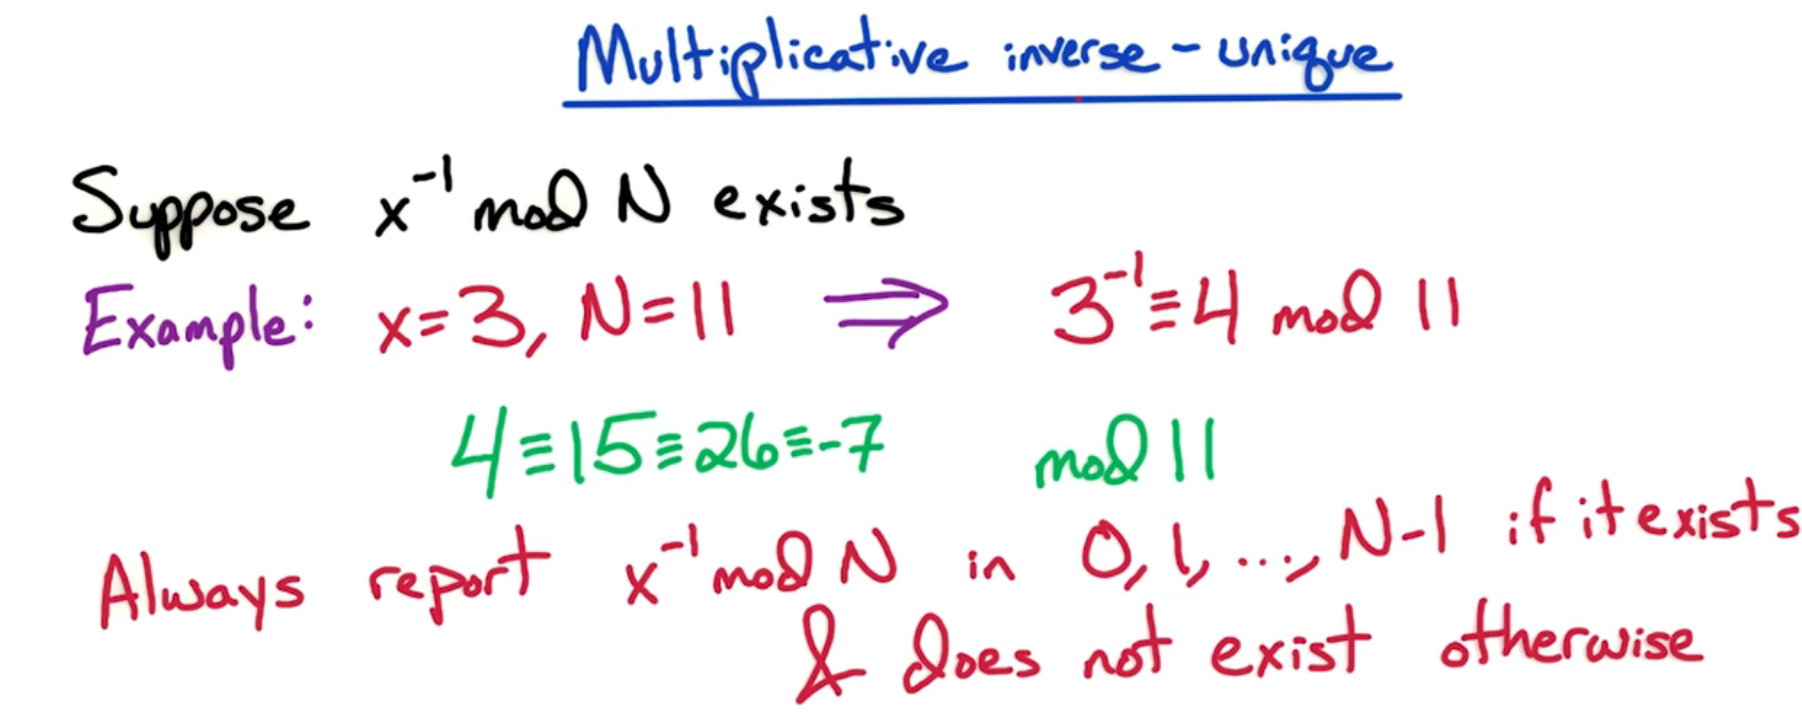 Multiplicative inverse - unique
Suppose x⁻¹ mod N exists
Example: x=3, N=11 ⟹ 3⁻¹≡4 mod 11
4≡15≡26≡-7 mod 11
Always report x⁻¹ mod N in 0,1,...,N-1 if it exists
& does not exist otherwise